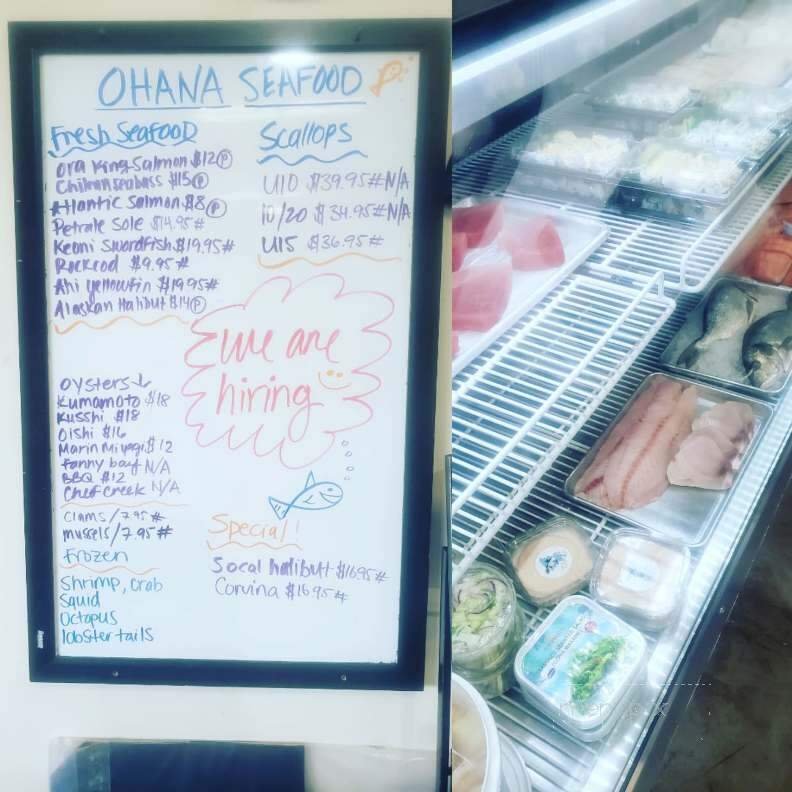 OHANA SEAFOOD
Fresh Seafood
Ora King Salmon $12 Ⓟ
Chilean seabass $15 Ⓟ
Atlantic Salmon $8 Ⓟ
Petrale Sole $14.95#
Keani Swordfish $19.95#
Rockcod $9.95#
Ahi Yellowfin $19.95#
Alaskan Halibut $14 Ⓟ
Scallops
U10 $39.95# N/A
10/20 $34.95# N/A
U15 $36.95#
we are
hiring
oysters ↓
Kumamoto $18
Kusshi $18
Oishi $16
Marin Miyagi $12
fanny bay N/A
BBQ $12
Chef Creek N/A
clams/7.95#
mussels/7.95#
frozen
Shrimp, crab
Squid
Octopus
lobster tails
Special!
Socal halibut $16.95#
Corvina $16.95#